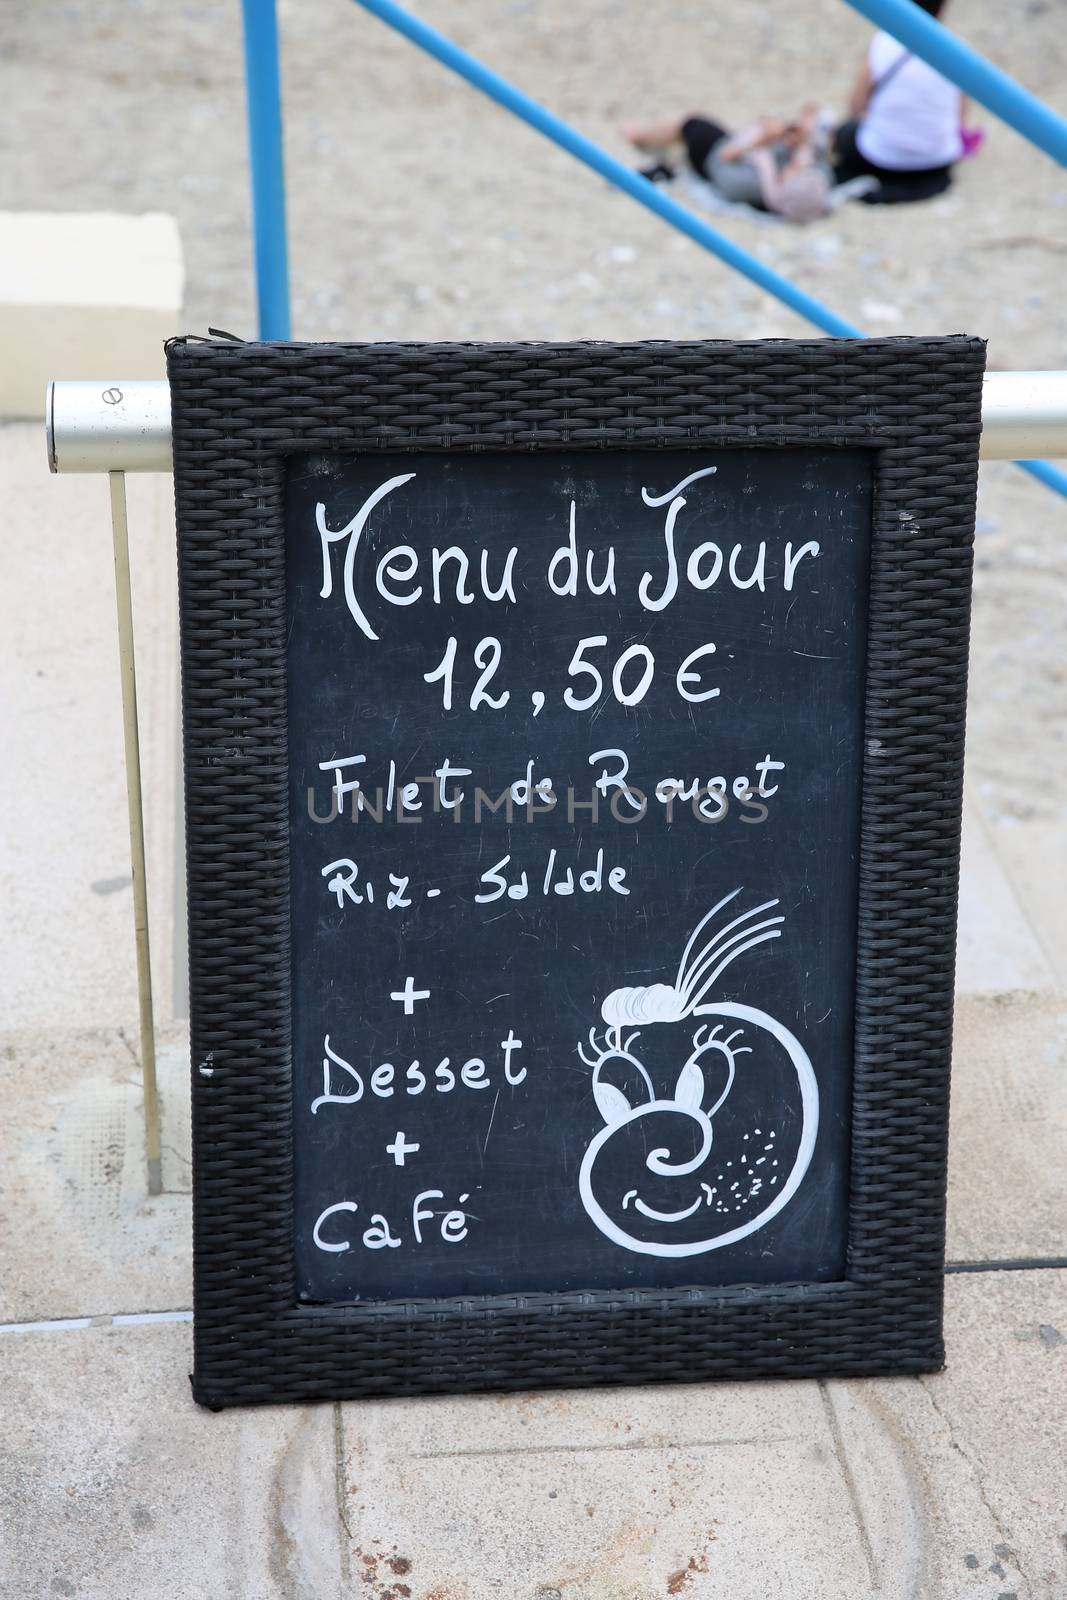 Menu du Jour
12,50 €
Filet de Rouget
UNETIMPHOTOS
Riz - Salade
+
Desset
+
Café